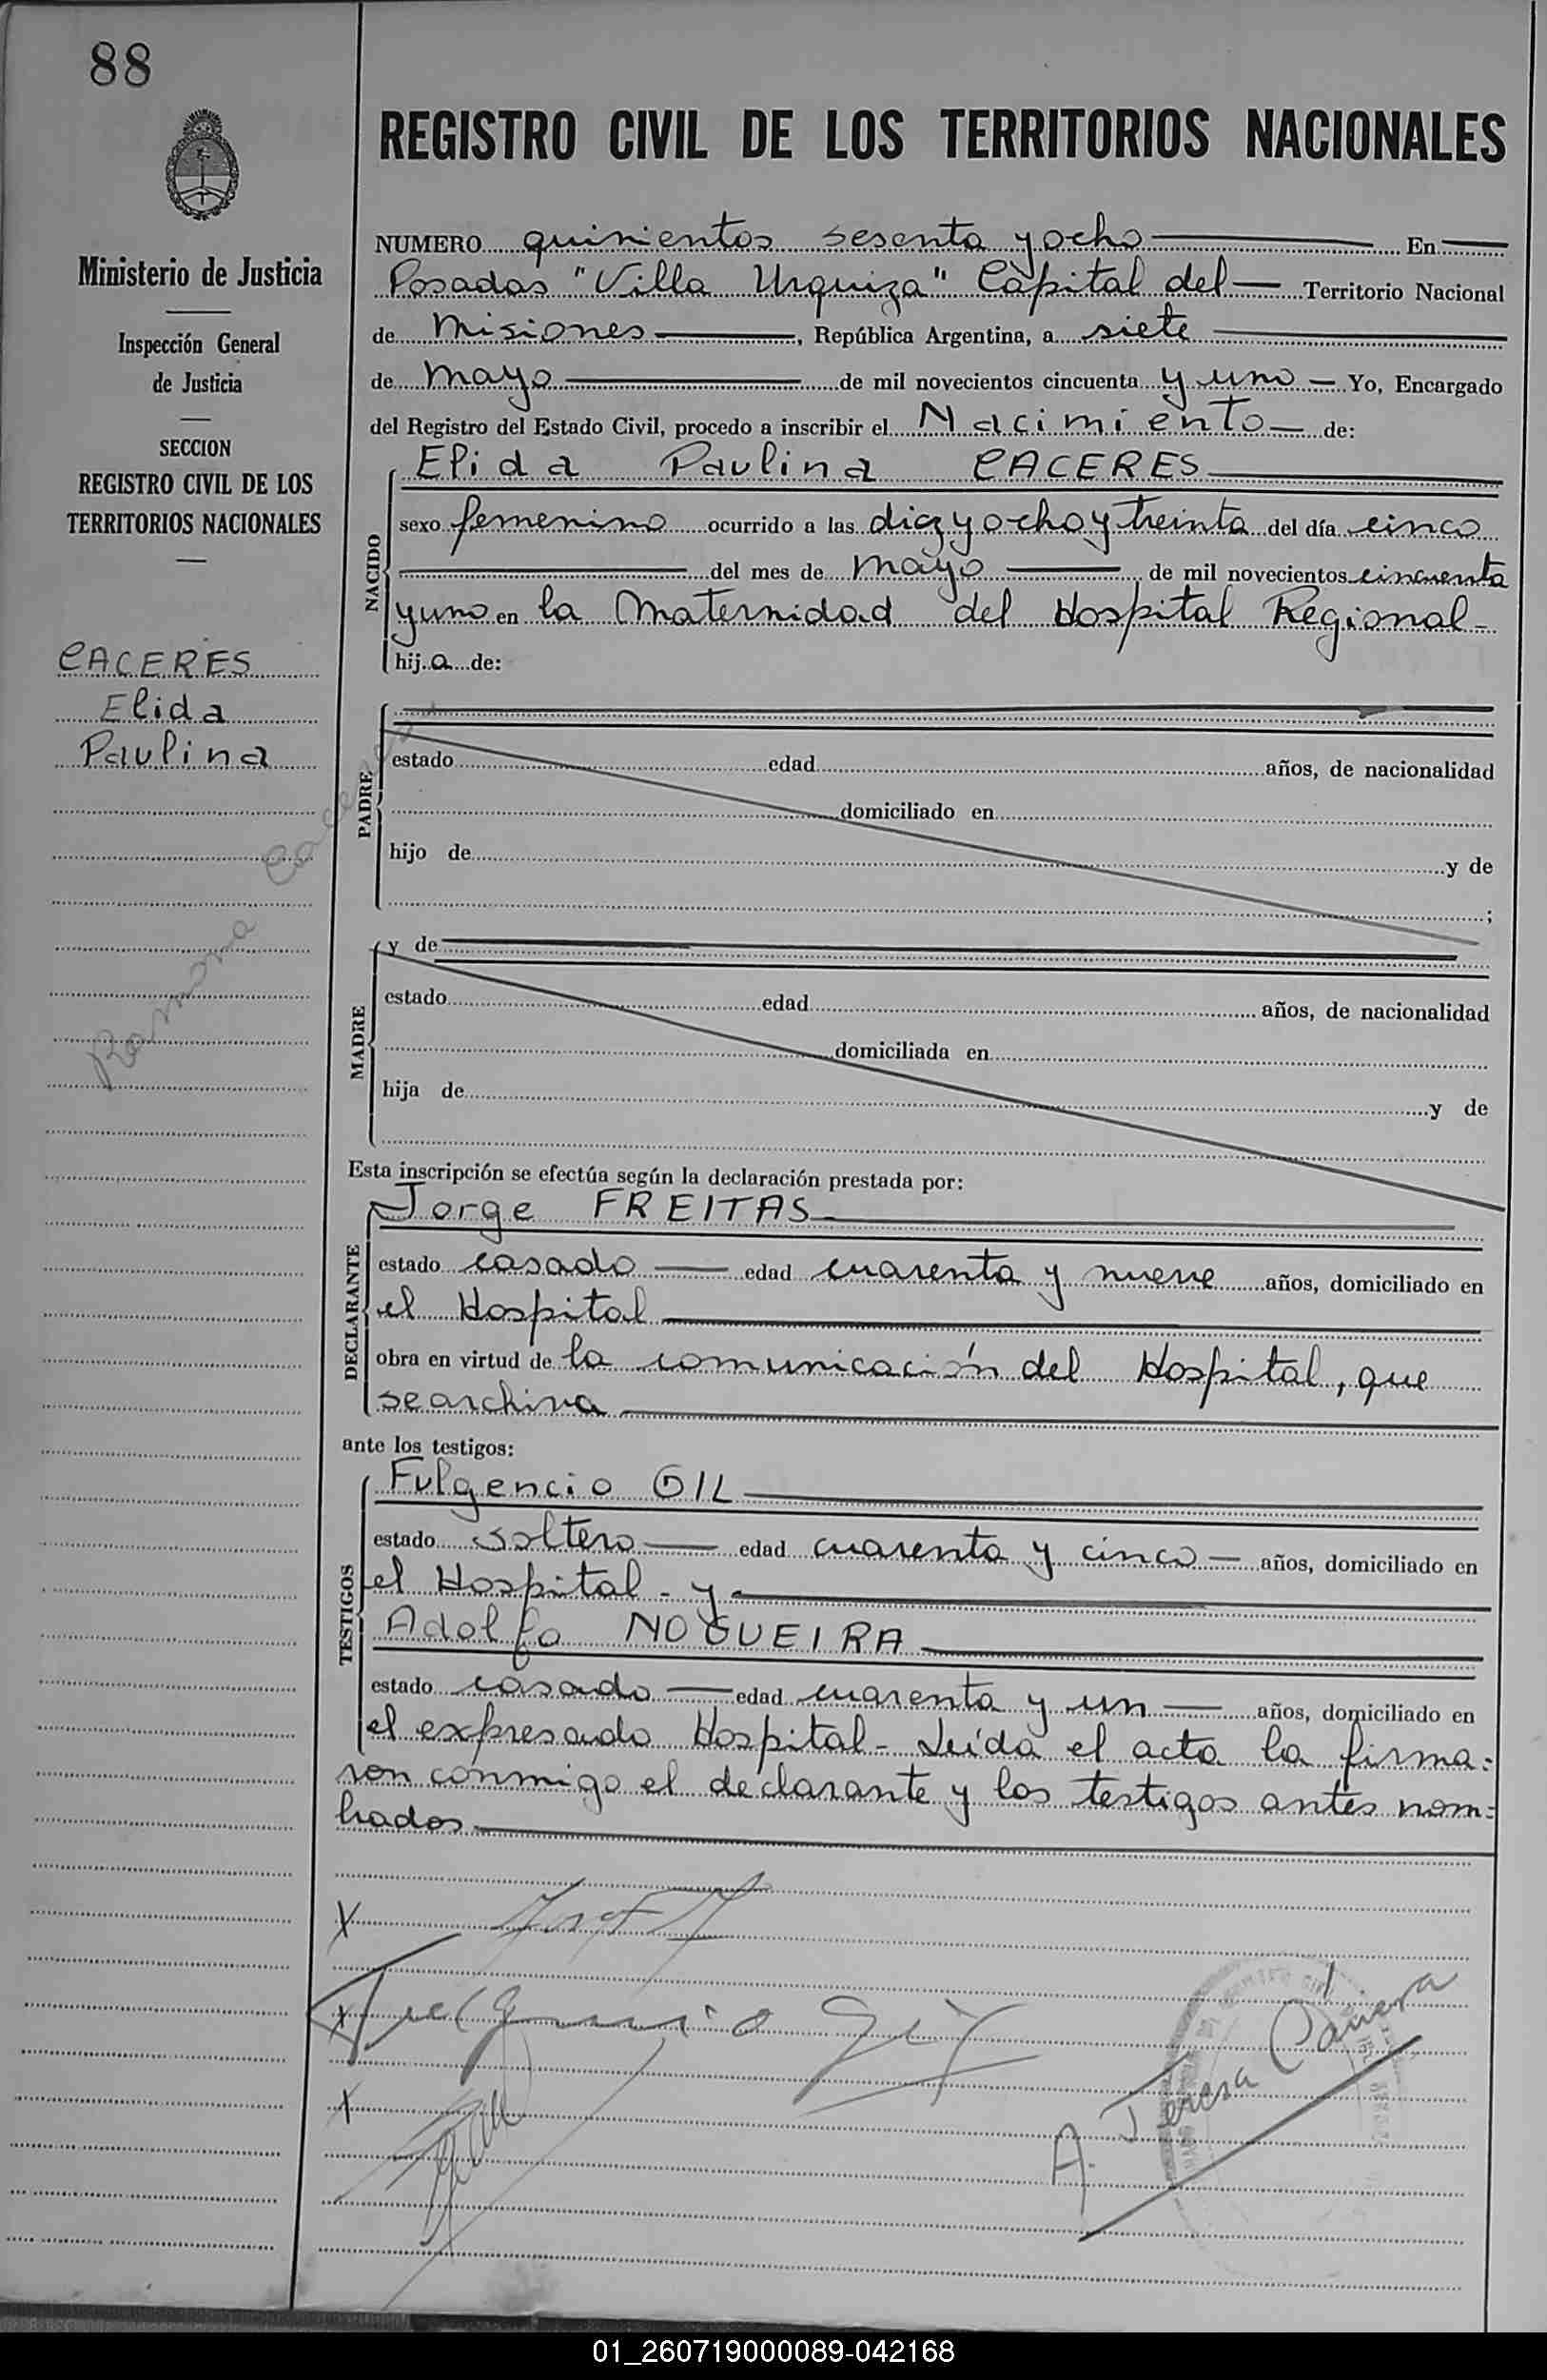 88
REGISTRO CIVIL DE LOS TERRITORIOS NACIONALES
Ministerio de Justicia
Inspección General
de Justicia
SECCION
REGISTRO CIVIL DE LOS
TERRITORIOS NACIONALES
CACERES
Elida
Paulina
Ramona Caceres
NUMERO quinientos sesenta y ocho En
Posadas "Villa Urquiza" Capital del Territorio Nacional
de Misiones, República Argentina, a siete
de mayo de mil novecientos cincuenta y uno Yo, Encargado
del Registro del Estado Civil, procedo a inscribir el Nacimiento de:
NACIDO
Elida Paulina CACERES
sexo femenino ocurrido a las diez y ocho y treinta del día cinco
del mes de mayo de mil novecientos cincuenta
y uno en la Maternidad del Hospital Regional
hija de:
PADRE
estado edad años, de nacionalidad
domiciliado en
hijo de y de
;
MADRE
y de
estado edad años, de nacionalidad
domiciliada en
hija de y de
Esta inscripción se efectúa según la declaración prestada por:
DECLARANTE
Jorge FREITAS
estado casado edad cuarenta y nueve años, domiciliado en
el Hospital
obra en virtud de la comunicación del Hospital, que
se archiva
ante los testigos:
TESTIGOS
Fulgencio GIL
estado soltero edad cuarenta y cinco años, domiciliado en
el Hospital - y
Adolfo NOGUEIRA
estado casado edad cuarenta y un años, domiciliado en
el expresado Hospital - Leída el acta la firma=
ron conmigo el declarante y los testigos antes nom=
brados
x
x Fulgencio Gil
x
A. Teresa
01_260719000089-042168